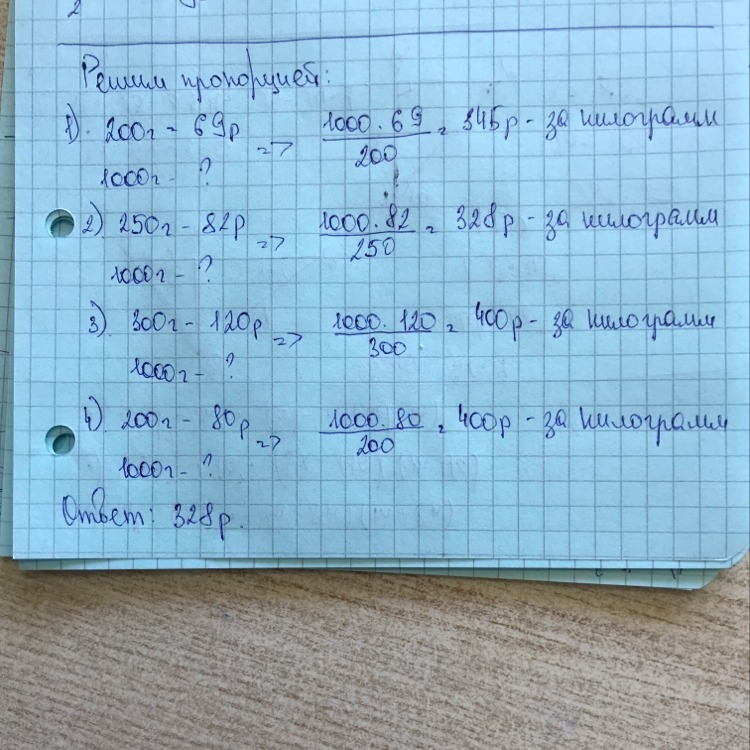 2
Решим пропорцией:
1). 200г - 69р => 1000 · 69 / 200 = 345р - за килограмм
1000г - ?
2) 250г - 82р => 1000 · 82 / 250 = 328р - за килограмм
1000г - ?
3) 300г - 120р => 1000 · 120 / 300 = 400р - за килограмм
1000г - ?
4) 200г - 80р => 1000 · 80 / 200 = 400р - за килограмм
1000г - ?
Ответ: 328р.